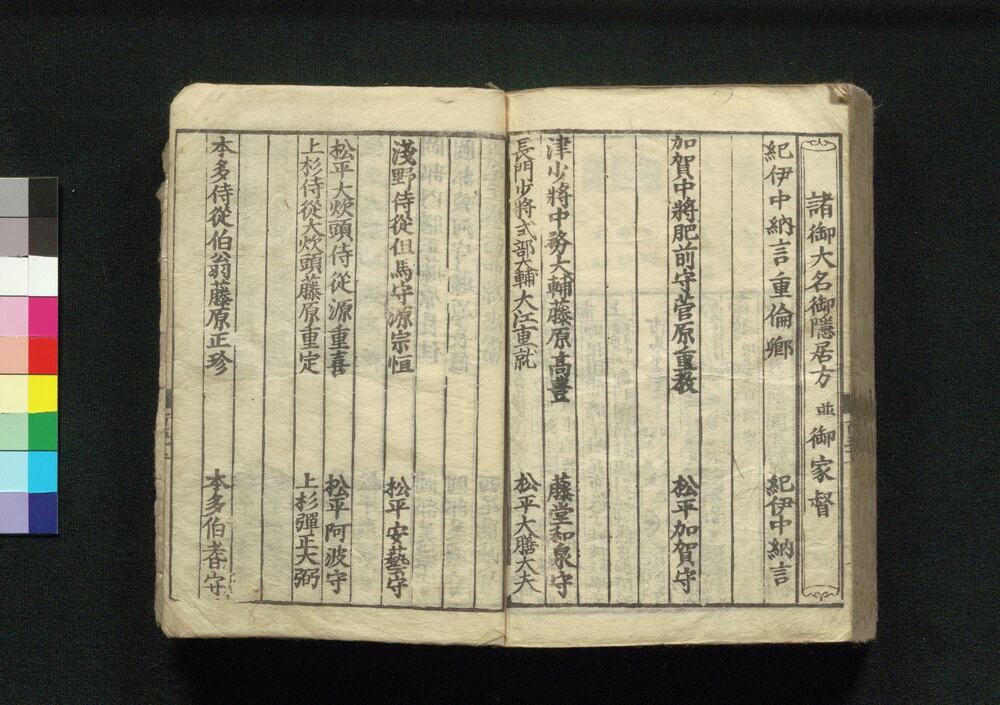 諸御大名御隠居方 並 御家督
紀伊中納言重倫卿 紀伊中納言
加賀中將肥前守菅原重教 松平加賀守
津少將中務大輔藤原高豊 藤堂和泉守
長門少將式部大輔大江重就 松平大膳大夫
淺野侍從但馬守源宗恒 松平安藝守
松平大炊頭侍從源重喜 松平阿波守
上杉侍從大炊頭藤原重定 上杉彈正大弼
本多侍從伯翁藤原正珍 本多伯耆守